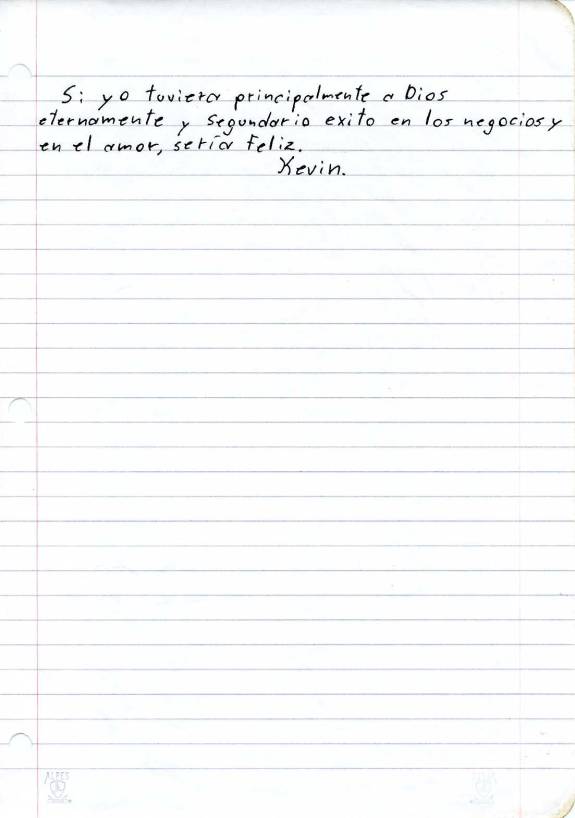 Si yo tuviera principalmente a Dios
eternamente y segundario exito en los negocios y
en el amor, sería feliz.
Kevin.
ALPES